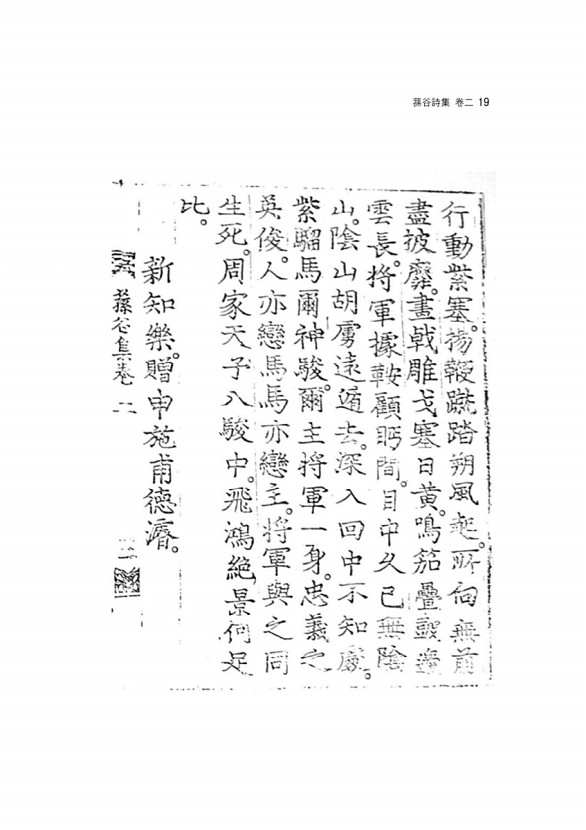 蓀谷詩集 卷二 19
行動紫塞。揚鞭蹴踏朔風起。所向無前
盡披靡。畫戟雕戈塞日黃。鳴笳疊鼓邊
雲長。將軍據鞍顧眄間。目中久已無陰
山。陰山胡虜遠遁去。深入回中不知處。
紫騮馬爾神駿。爾主將軍一身。忠義之
英俊。人亦戀馬馬亦戀主。將軍與之同
生死。周家天子八駿中。飛鴻絶景何足
比。
新知樂。贈申施甫德濬。
蓀谷集卷二